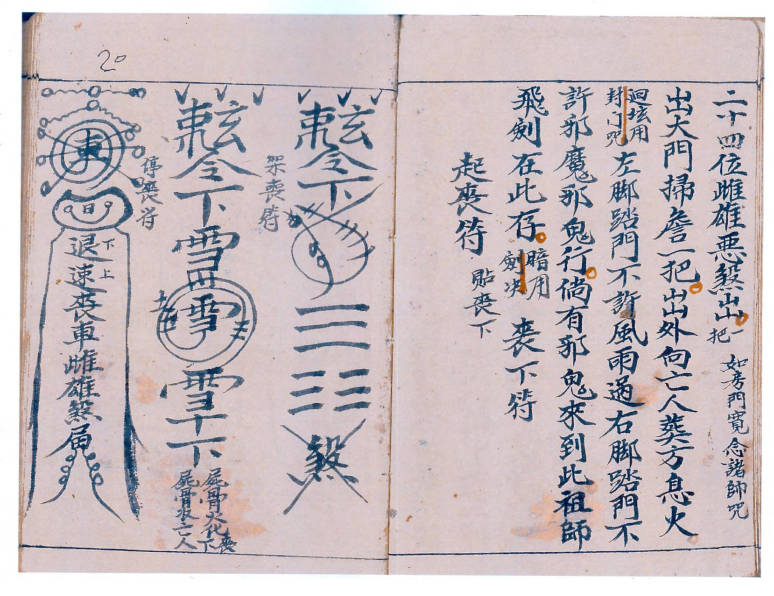 二十四位雌雄惡煞出一把
如房門寬念諸師咒
出大門掃詹一把出外向亡人葬方息火
迴垓用
封门咒
左脚踏門不許風雨過右脚踏門不
許邪魔邪鬼行倘有邪鬼來到此祖師
飛劍在此存
暗用
劍决
丧下符
起丧符
貼丧下
玄
令下
三三三
煞
架丧符
玄
令下
雪
下
屍骨火化丧下
屍骨水亡人
停丧符
日
退下上
速丧車雌雄煞局
20